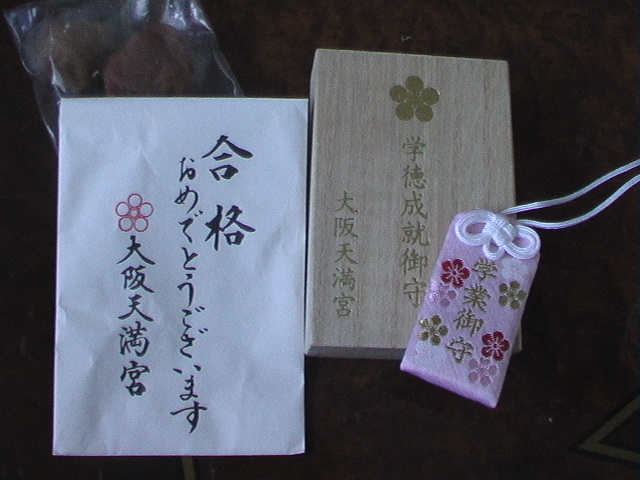 合格
おめでとうございます
大阪天満宮
学徳成就御守
大阪天満宮
学業御守